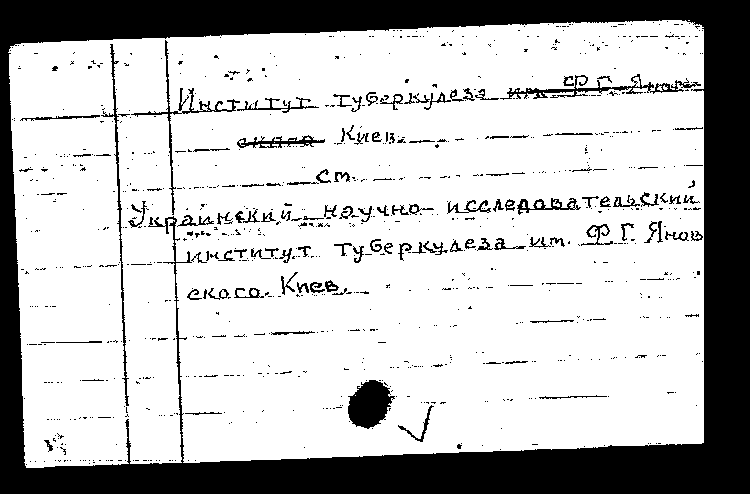 Институт туберкулеза им. Ф Г. Янов-
ского Киев.
ст.
Украинский научно-исследовательский
институт туберкулеза им. Ф.Г. Янов
ского. Киев.